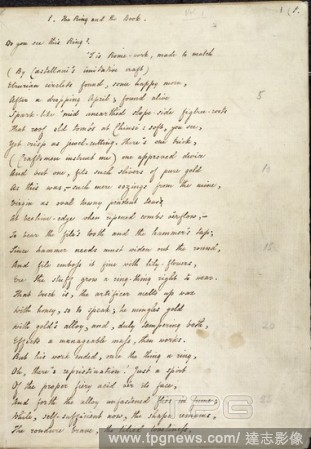 1. The Ring and the Book.
1
Do you see this Ring?
'T is Rome-work, made to match
(By Castellani's imitative craft)
Etrurian circlets found, some happy morn,
After a dropping April; found alive
5
Spark-like 'mid unearthed slope-side figtree-roots
That roof old tombs at Chiusi: soft, you see,
Yet crisp as jewel-cutting. There's one trick,
(Craftsmen instruct me) one approved device
And but one, fits such slivers of pure gold
10
As this was,—such mere oozings from the mine,
Virgin as oval tawny pendent tear
At beehive-edge when ripened combs o'erflow,—
To bear the file's tooth and the hammer's tap:
Since hammer needs must widen out the round,
15
And file emboss it fine with lily-flowers,
Ere the stuff grow a ring-thing right to wear.
That trick is, the artificer melts up wax
With honey, so to speak; he mingles gold
With gold's alloy, and, duly tempering both,
20
Effects a manageable mass, then works.
But his work ended, once the thing a ring,
Oh, there's repristination! Just a spirt
Of the proper fiery acid o'er its face,
And forth the alloy unfastened flies in fume;
While, self-sufficient now, the shape remains,
The rondure brave, the lilied loveliness,
www.tpgnews.com/達志影像